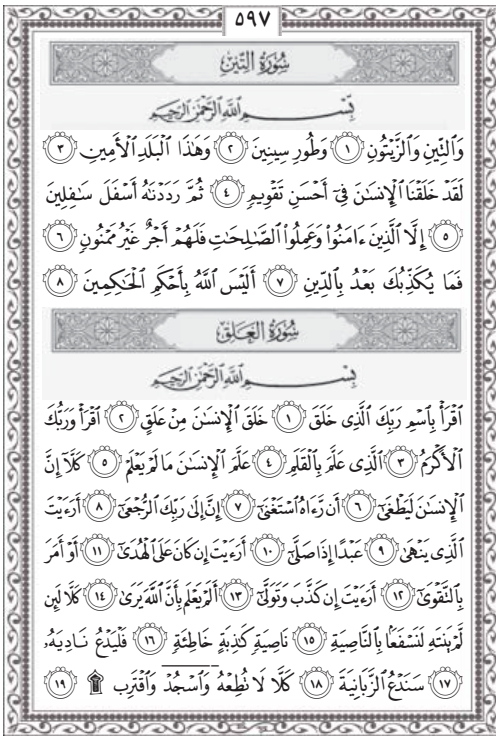 ٥٩٧
سُورَةُ التِّينِ
بِسْمِ اللَّهِ الرَّحْمَٰنِ الرَّحِيمِ
وَٱلتِّينِ وَٱلزَّيْتُونِ ١ وَطُورِ سِينِينَ ٢ وَهَٰذَا ٱلْبَلَدِ ٱلْأَمِينِ ٣
لَقَدْ خَلَقْنَا ٱلْإِنسَٰنَ فِىٓ أَحْسَنِ تَقْوِيمٍ ٤ ثُمَّ رَدَدْنَٰهُ أَسْفَلَ سَٰفِلِينَ
٥ إِلَّا ٱلَّذِينَ ءَامَنُوا۟ وَعَمِلُوا۟ ٱلصَّٰلِحَٰتِ فَلَهُمْ أَجْرٌ غَيْرُ مَمْنُونٍ ٦
فَمَا يُكَذِّبُكَ بَعْدُ بِٱلدِّينِ ٧ أَلَيْسَ ٱللَّهُ بِأَحْكَمِ ٱلْحَٰكِمِينَ ٨
سُورَةُ العَلَقِ
بِسْمِ اللَّهِ الرَّحْمَٰنِ الرَّحِيمِ
ٱقْرَأْ بِٱسْمِ رَبِّكَ ٱلَّذِى خَلَقَ ١ خَلَقَ ٱلْإِنسَٰنَ مِنْ عَلَقٍ ٢ ٱقْرَأْ وَرَبُّكَ
ٱلْأَكْرَمُ ٣ ٱلَّذِى عَلَّمَ بِٱلْقَلَمِ ٤ عَلَّمَ ٱلْإِنسَٰنَ مَا لَمْ يَعْلَمْ ٥ كَلَّآ إِنَّ
ٱلْإِنسَٰنَ لَيَطْغَىٰٓ ٦ أَن رَّءَاهُ ٱسْتَغْنَىٰٓ ٧ إِنَّ إِلَىٰ رَبِّكَ ٱلرُّجْعَىٰٓ ٨ أَرَءَيْتَ
ٱلَّذِى يَنْهَىٰ ٩ عَبْدًا إِذَا صَلَّىٰٓ ١٠ أَرَءَيْتَ إِن كَانَ عَلَى ٱلْهُدَىٰٓ ١١ أَوْ أَمَرَ
بِٱلتَّقْوَىٰٓ ١٢ أَرَءَيْتَ إِن كَذَّبَ وَتَوَلَّىٰٓ ١٣ أَلَمْ يَعْلَم بِأَنَّ ٱللَّهَ يَرَىٰ ١٤ كَلَّا لَئِن
لَّمْ يَنتَهِ لَنَسْفَعًۢا بِٱلنَّاصِيَةِ ١٥ نَاصِيَةٍ كَٰذِبَةٍ خَاطِئَةٍ ١٦ فَلْيَدْعُ نَادِيَهُۥ
١٧ سَنَدْعُ ٱلزَّبَانِيَةَ ١٨ كَلَّا لَا تُطِعْهُ وَٱسْجُدْ وَٱقْتَرِب ۩ ١٩